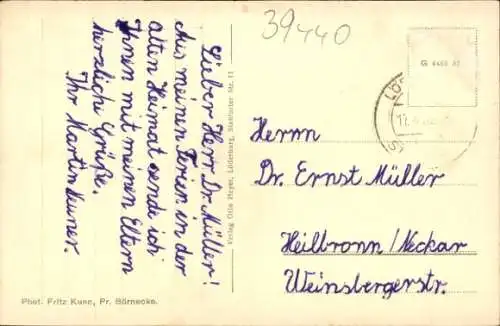 39440
Lieber Herr Dr. Müller!
Aus meinen Ferien in der
alten Heimat sende ich
Ihnen mit meinen Eltern
herzliche Grüße.
Ihr Martin
Verlag Otto Pieper, Löderburg, Staßfurter Str. 11
Herrn
Dr. Ernst Müller
Heilbronn/Neckar
Weinsbergerstr.
Phot. Fritz Kunc, Pr. Börnecke.